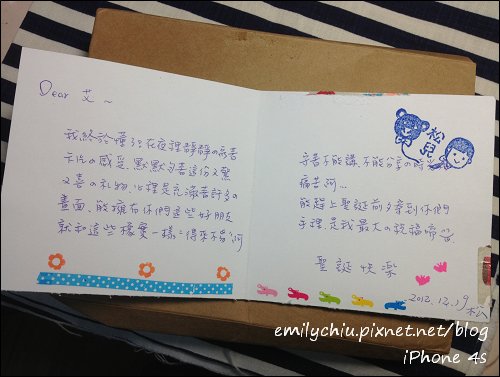 Dear 艾～
我終於懂了在夜裡靜靜的寫著
卡片の感受、默默守著這份又驚
又喜の礼物，心裡是充滿著許多の
畫面、能擁有你們這些好朋友
就和這些橡實一樣：得來不易"阿
松兒
守著不能講、不能分享の時
痛苦阿…
能趕上聖誕前夕寄到你們
手裡、是我最大の祝福
聖誕快樂
2012.12.19
松
emilychiu.pixnet.net/blog
iPhone 4s